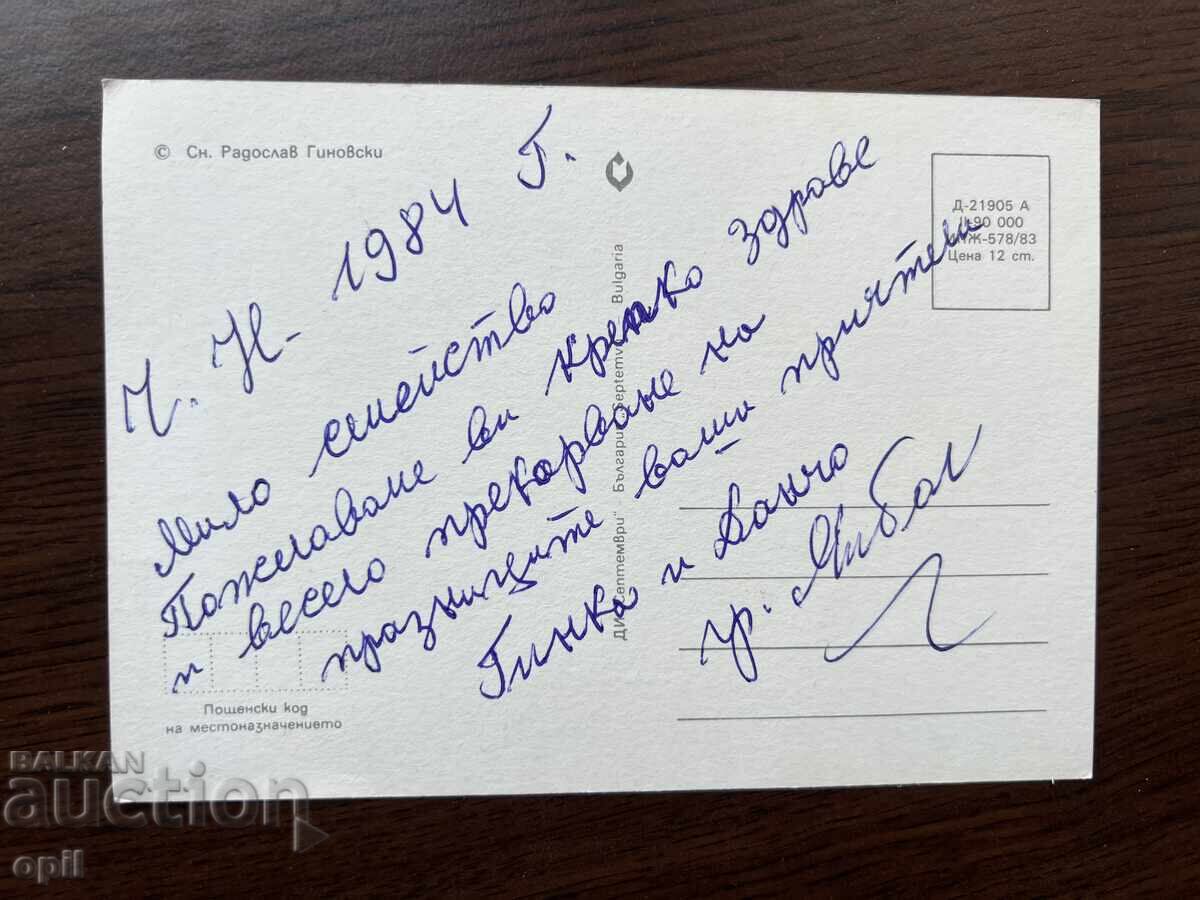 © Сн. Радослав Гиновски
Ч. Н. 1984 Г.
Мило семейство
Пожелаваме ви крепко здраве
и весело прекорване на
празниците ваши приятели
Гинка и Данчо
гр.
ДИ „Септември“ България „Septemvri“ Bulgaria
Д-21905 А
II-90 000
ИЖ-578/83
Цена 12 ст.
Пощенски код
на местоназначението
BALKAN
auction
opil